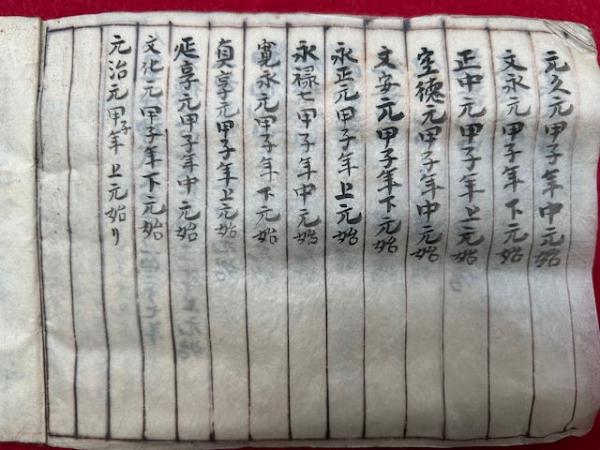 元久元甲子年中元始
文永元甲子年下元始
正中元甲子年上元始
至德元甲子年中元始
文安元甲子年下元始
永正元甲子年上元始
永禄七甲子年中元始
寛永元甲子年下元始
貞享元甲子年上元始
延享元甲子年中元始
文化元甲子年下元始
元治元甲子年上元始り